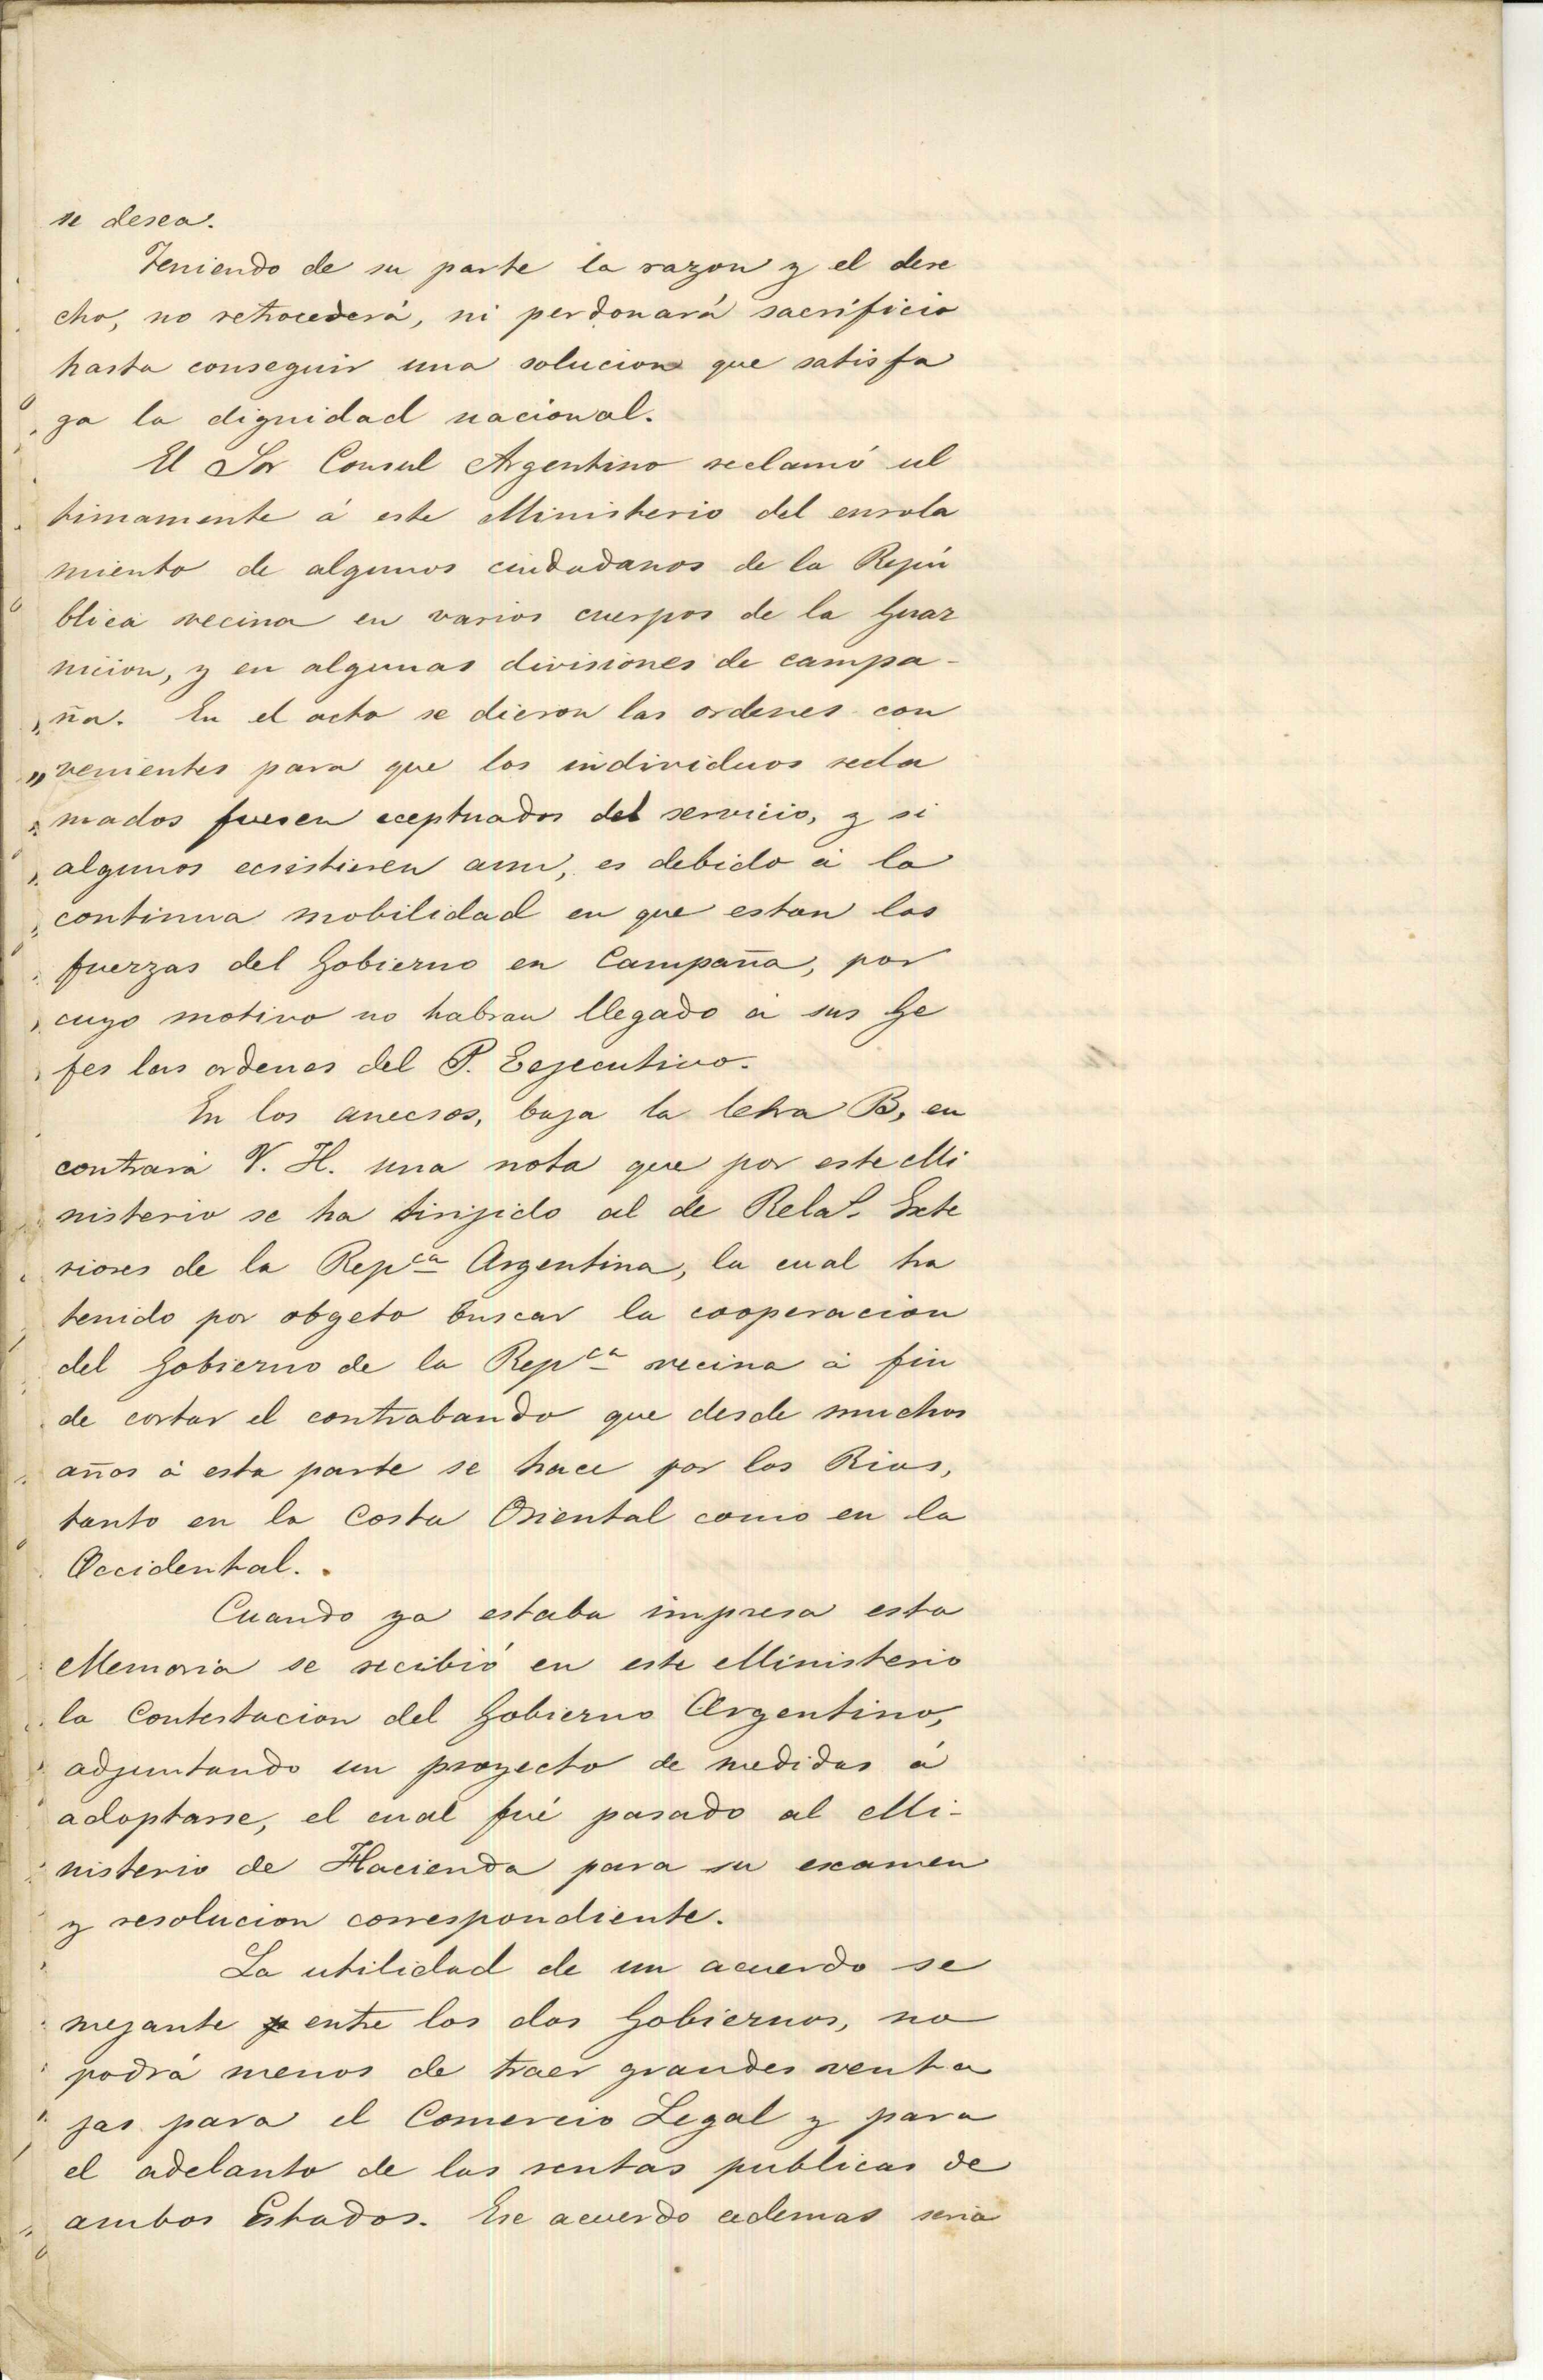 se desea.
Teniendo de su parte la razon y el dere
cho, no retrocederá, ni perdonará sacrificio
hasta conseguir una solucion que satisfa
ga la dignidad nacional.
El Sor Consul Argentino reclamó ul
timamente á este Ministerio del enrola
miento de algunos ciudadanos de la Repú
blica vecina en varios cuerpos de la Guar
nicion, y en algunas divisiones de campa-
ña. En el acto se dieron las ordenes con
venientes para que los individuos recla
mados fuesen eceptuados del servicio, y si
algunos ecsistiesen aun, es debido á la
continua mobilidad en que estan las
fuerzas del Gobierno en Campaña, por
cuyo motivo no habran llegado á sus Ge
fes las ordenes del P. Egecutivo.
En los anecsos, baja la letra B, en
contrará V. H. una nota que por este Mi
nisterio se ha dirijido al de Relas. Exte
riores de la Repca Argentina, la cual ha
tenido por obgeto buscar la cooperacion
del Gobierno de la Repca vecina á fin
de cortar el contrabando que desde muchos
años á esta parte se hace por los Rios,
tanto en la Costa Oriental como en la
Occidental.
Cuando ya estaba impresa esta
Memoria se recibió en este Ministerio
la Contestacion del Gobierno Argentino,
adjuntando un proyecto de medidas á
adoptarse, el cual fué pasado al Mi-
nisterio de Hacienda para su examen
y resolucion correspondiente.
La utilidad de un acuerdo se
mejante entre los dos Gobiernos, no
podrá menos de traer grandes venta
jas para el Comercio Legal y para
el adelanto de las rentas publicas de
ambos Estados. Ese acuerdo ademas seria